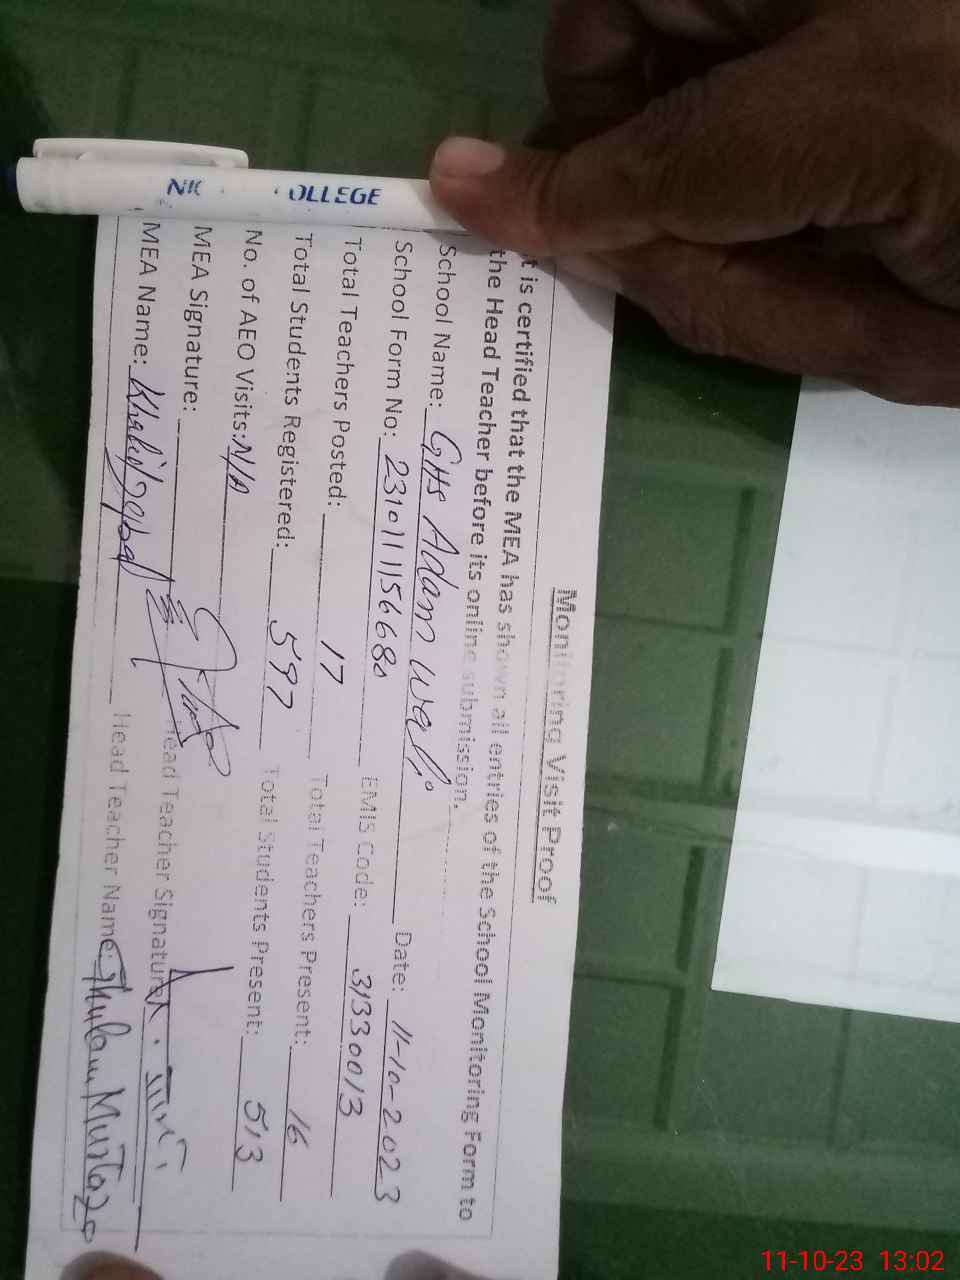 Monitoring Visit Proof
t is certified that the MEA has shown all entries of the School Monitoring Form to
the Head Teacher before its online submission.
School Name: GHS Adam Wali Date: 11-10-2023
School Form No: 23101115668 EMIS Code: 31330013
Total Teachers Posted: 17 Total Teachers Present: 16
Total Students Registered: 597 Total Students Present: 513
No. of AEO Visits: N/A
MEA Signature: Head Teacher Signature
MEA Name: Khalid Iqbal Head Teacher Name: Ghulam Murtaza
OLLEGE
11-10-23 13:02